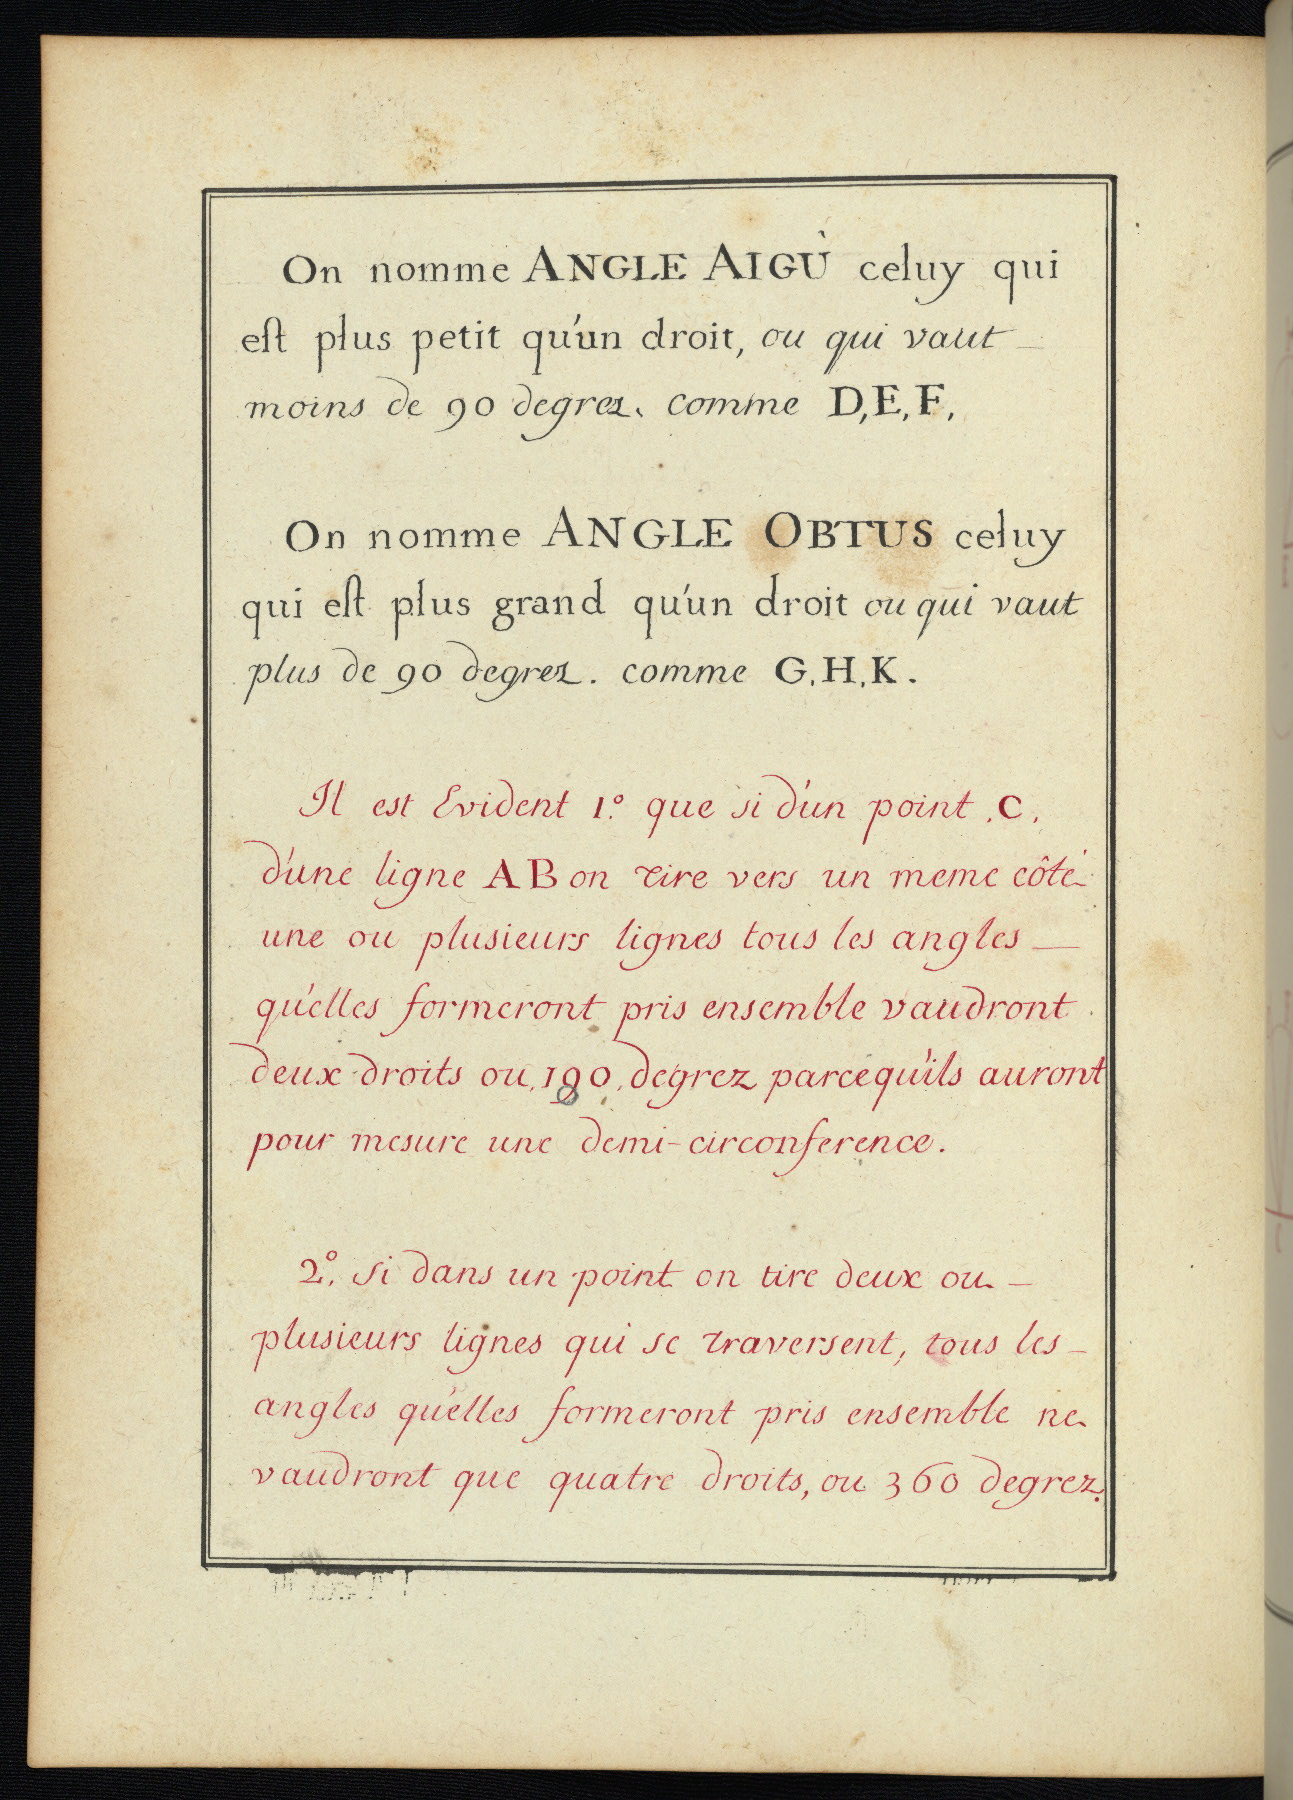 On nomme ANGLE AIGÙ celuy qui
est plus petit qu'un droit, ou qui vaut
moins de 90 degrez. comme D,E,F,
On nomme ANGLE OBTUS celuy
qui est plus grand qu'un droit ou qui vaut
plus de 90 degrez. comme G,H,K.
Il est Evident 1.º que si d'un point .C.
d'une ligne AB on tire vers un meme côté
une ou plusieurs lignes tous les angles
qu'elles formeront pris ensemble vaudront
deux droits ou 180 degrez parcequ'ils auront
pour mesure une demi-circonference.
2.º Si dans un point on tire deux ou
plusieurs lignes qui se traversent, tous les
angles qu'elles formeront pris ensemble ne
vaudront que quatre droits, ou 360 degrez.